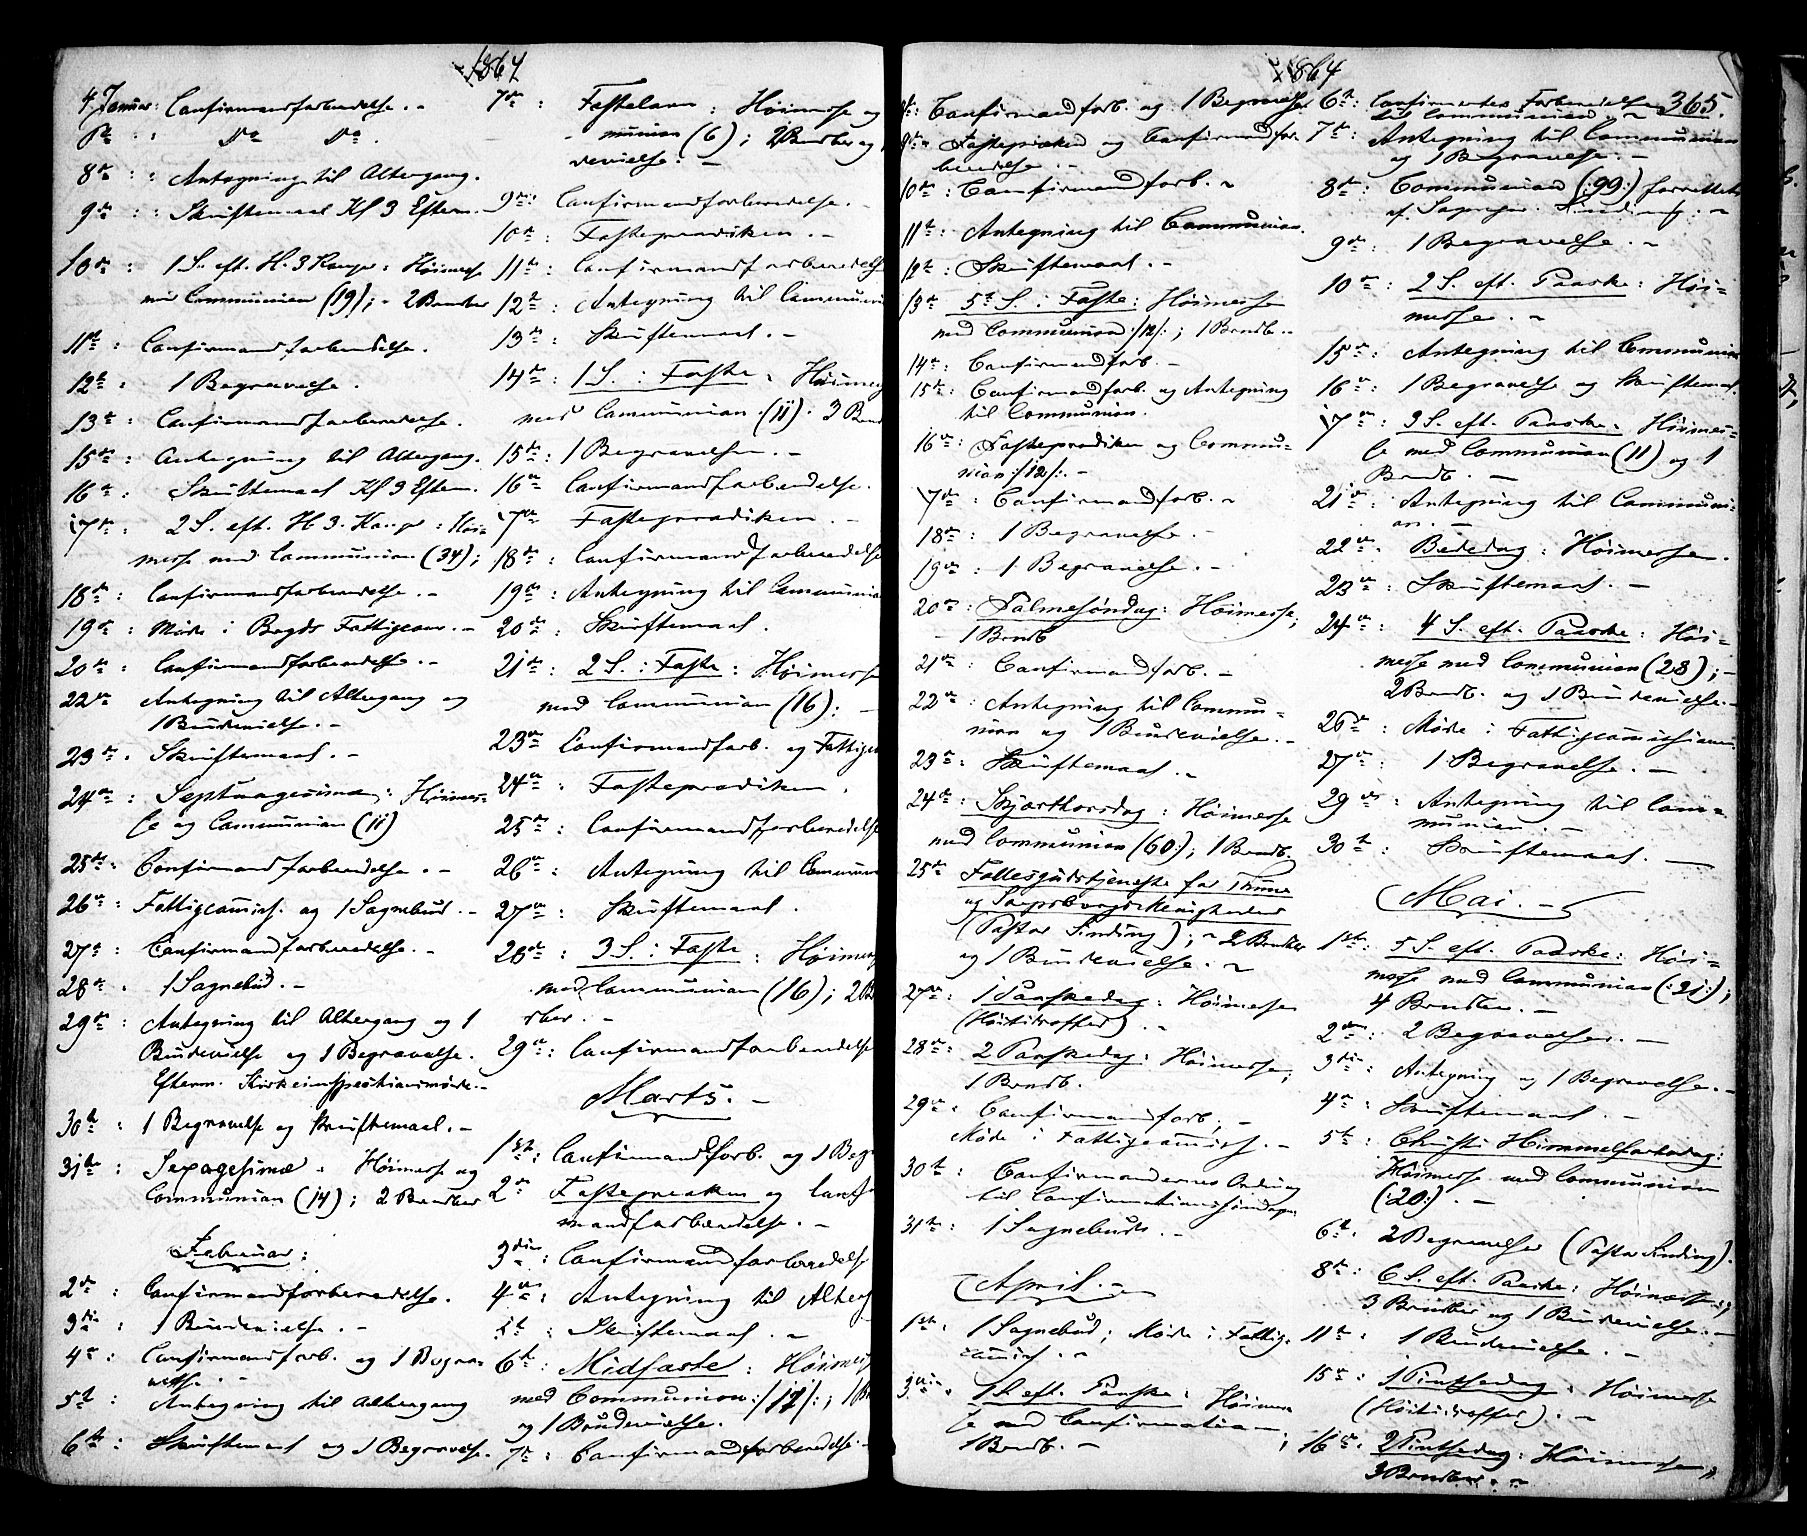 1864
4 Januar: Confirmandforberedelse. -
8de : : Do Do.
8de : : Antegning til Altergang.
9de : : Skriftemaal Kl 3 Efterm. -
10de : 1 S. eft. H. 3 Konger : Høimesse
med Communion (19); - 2 Brudker
11te : Confirmandforberedelse.
12te : 1 Begravelse.
13de : Confirmandforberedelse.
15de : Antegning til Altergang.
16de : Skriftemaal Kl 3 Efterm.
17de : 2 S. eft. H 3. Konger : Høi-
messe med Communion (34);
18de : Confirmandforberedelse. -
19de : Møde i Bygds Fattigcom. -
20de : Confirmandforberedelse. -
22de Antegning til Altergang og
1 Brudevielse. -
23de . Skriftemaal. -
24de : Septuagesima : Høimes-
se og Communion (11)
25de : Confirmandforberedelse. -
26de : Fattigcommiss. og 1 Sognebud. -
27de : Confirmandforberedelse. -
28de . 1 Sognebud. -
29de : Antegning til Altergang og 1
Brudevielse og 1 Begravelse.
Efterm. Kirkeinspectionsmøde. -
30te : 1 Begravelse og Skriftemaal. -
31te : Sexagesima . Høimesse og
Communion (14); 2 Brudker
Februar :
2de : Confirmandforberedelse.
3die : 1 Brudevielse. -
4de : Confirmandforb. og 1 Begra-
velse. -
5te : Antegning til Altergang
6te : Skriftemaal og 1 Begravelse.
7de : Fastelavn : Høimesse og
munion (6); 2 Brudker og
devielse. -
9de : Confirmandforberedelse. -
10de : Fasteprædiken. -
11te : Confirmandforberedelse
12te : Antegning til Communi
13de : Skriftemaal. -
14de : 1 S. i Faste : Høimes
med Communion (11). 3 Brud
15de : 1 Begravelse. -
16de Confirmandforberedelse.
17de Fasteprædiken. -
18de : Confirmandforberedelse
19de : Antegning til Communio
20de : Skriftemaal.
21de : 2 S. i Faste : Høimesse
med Communion (16) : -
23de Confirmandforb. og Fattig
24de : Fasteprædiken.
25de : Confirmandforberedelse
26de : Antegning til Commun
27de : Skriftemaal.
28de : 3 S. i Faste : Høimes
med Communion (16); 2 B
dker. -
29de : Confirmandforberedelse
Marts. -
1ste : Confirmandforb. og 1 Beg
2de Fasteprædiken og Confir
mandforberedelse. -
3die : Confirmandforberedelse
4de : Antegning til Alterg
5te : Skriftemaal. -
6te : Midfaste : Høimes
med Communion :/17/: ; 1 Br
og 1 Brudevielse.
7de : Confirmandforberedelse. -
1864
8de : Confirmandforb. og 1 Begravelse
9de . Fasteprædiken og Confirmandfor
beredelse. -
10de : Confirmandforb. -
11te : Antegning til Communion.
12te : Skriftemaal. -
13de 5te S. i Faste : Høimesse
med Communion :/12/: ; 1 Brudb. -
14de : Confirmandforb. -
15de : Confirmandforb. og Antegning
til Communion.
16de : Fasteprædiken og Commu-
nion :/12/: -
17de : Confirmandforb. -
18de : 1 Begravelse. -
19de : 1 Begravelse. -
20de : Palmesøndag : Høimesse;
- 1 Brudb
21de : Confirmandforb. -
22de : Antegning til Commu-
nion og 1 Brudevielse. -
23de : Skriftemaal. -
24de : Skjærthorsdag : Høimesse
med Communion (60:); 1 Brudb.
25de Fællesgudstjeneste for Tune
og Sarpsborgs Menigheder
(Pastor Sinding); - 2 Brudker
og 1 Brudevielse. -
27de : 1 Paaskedag : Høimesse
(Høitidsoffer). -
28de : 2 Paaskedag : Høimesse;
1 Brudb.
29de : Confirmandforb; -
Møde i Fattigcommiss. -
30te : Confirmandernes Ordning
til Confirmationshandlingen
31te : 1 Sognebud. -
April. -
1ste : 1 Sognebud; Møde i Fattig-
commiss. -
3die . 1 S. eft. Paaske : Høimes
se med Confirmation - ;
1 Brudb. -
365.
6te : Confirmerter Forberedelse
til Communion -
7de : Antegning til Communion
og 1 Begravelse. -
8de : Communion (:99:) forrettet
af Sogнepr. Sinding. -
9de : 1 Begravelse. -
10de : 2 S. eft. Paaske : Høi-
messe. -
15de : Antegning til Communion
16de : 1 Begravelse og Skriftemaal.
17de : 3 S. eft. Paaske : Høimes-
se med Communion (11) og 1
Brudb. -
21de : Antegning til Communi-
on. -
22de . Bededag : Høimesse.
23de : Skriftemaal. -
24de : 4 S. eft. Paaske : Høi-
messe med Communion (28); -
2 Brudb. og 1 Brudevielse. -
26de : Møde i Fattigcommission
27de : 1 Begravelse. -
29de : Antegning til Com-
munion. -
30te : Skriftemaal. -
Mai. -
1ste : 5 S. eft. Paaske : Høi-
messe med Communion (:21:);
4 Brudker. -
2den : 2 Begravelser. -
3die : Antegning og 1 Begravelse. -
4de : Skriftemaal. -
5te : Christi Himmelfartsdag :
Høimesse med Communion
(:20:). -
6te : 2 Begravelser (Pastor Sinding).
8de : 6 S. eft. Paaske : Høimesse;
3 Brudker og 1 Brudevielse. -
11te : 1 Brudevielse. -
15de : 1 Pintsedag : Høimesse
(Høitidsoffer). -
16de : 2 Pintsedag : Høimesse,
3 Brudker. -